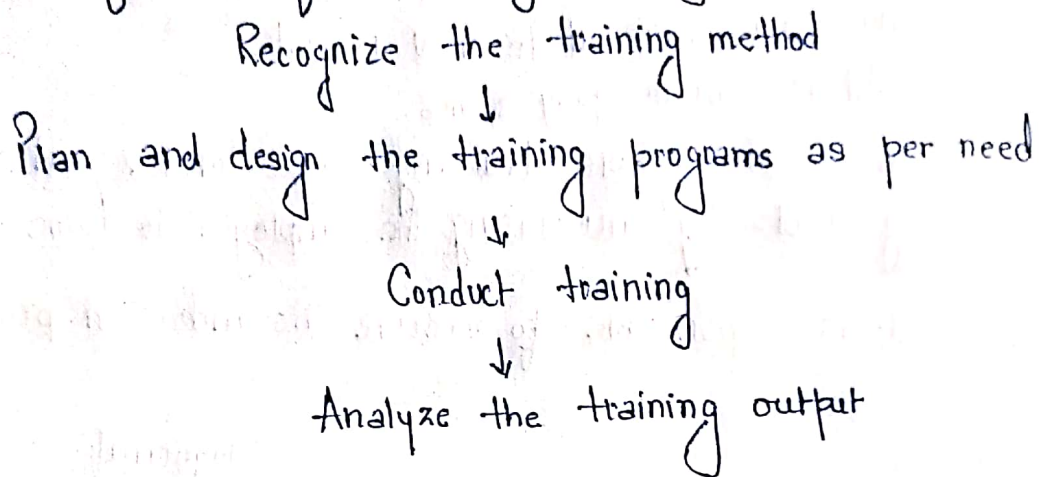 Recognize the training method
↓
Plan and design the training programs as per need
↓
Conduct training
↓
Analyze the training output